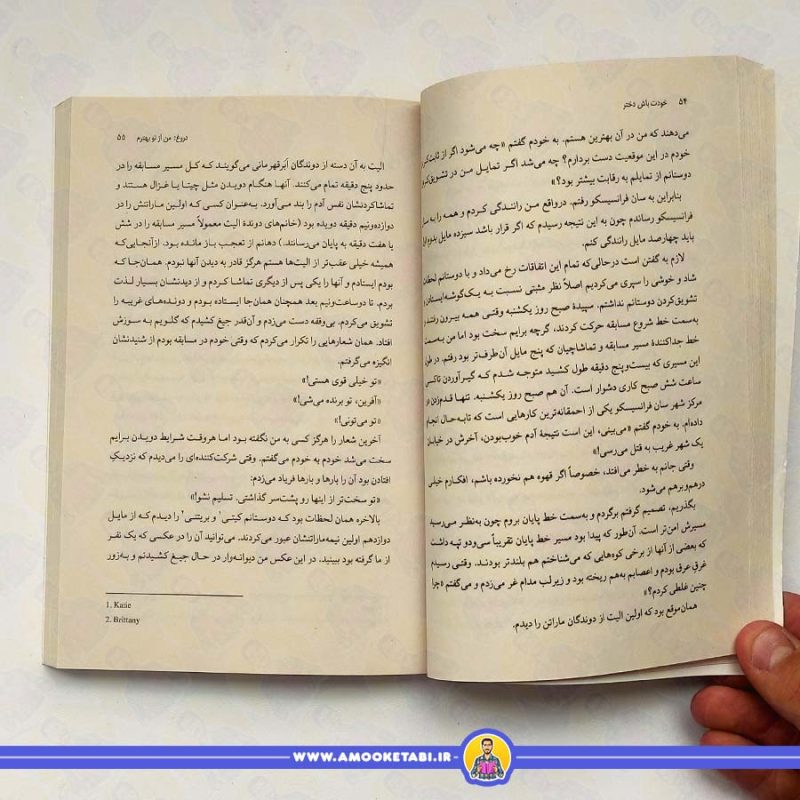 ۵۴ خودت باش دختر
می‌دهند که من در آن بهترین هستم. به خودم گفتم «چه می‌شود اگر از
خودم در این موقعیت دست بردارم؟ چه می‌شد اگر تمایل من در
دوستانم از تمایلم به رقابت بیشتر بود؟»
بنابراین به سان فرانسیسکو رفتم. درواقع من رانندگی کردم و همه را به سان
فرانسیسکو رساندم چون به این نتیجه رسیدم که اگر قرار باشد سیزده مایل بدوم
باید چهارصد مایل رانندگی کنم.
لازم به گفتن است درحالی‌که تمام این اتفاقات رخ می‌داد و با دوستانم لحظات
شاد و خوشی را سپری می‌کردیم اصلاً نظر مثبتی نسبت به یک‌گوشه‌ایستادن و
تشویق‌کردن دوستانم نداشتم. سپیدهٔ صبح روز یکشنبه وقتی همه بیرون رفتند و
به‌سمت خط شروع مسابقه حرکت کردند، گرچه برایم سخت بود اما من به‌سمت
خط جداکنندهٔ مسیر مسابقه و تماشاچیان که پنج مایل آن‌طرف‌تر بود رفتم. در طول
این مسیری که بیست‌وپنج دقیقه طول کشید متوجه شدم که گیرآوردن تاکسی
ساعت شش صبح کاری دشوار است. آن هم صبح روز یکشنبه. تنها قدم‌زدن در
مرکز شهر سان فرانسیسکو یکی از احمقانه‌ترین کارهایی است که تابه‌حال انجام
داده‌ام. به خودم گفتم «می‌بینی، این است نتیجهٔ آدم خوب‌بودن، آخرش در خیابان
یک شهر غریب به قتل می‌رسی!»
وقتی جانم به خطر می‌افتد، خصوصاً اگر قهوه هم نخورده باشم، افکارم خیلی
درهم‌وبرهم می‌شود.
بگذریم، تصمیم گرفتم برگردم و به‌سمت خط پایان بروم چون به‌نظر می‌رسید
مسیرش امن‌تر است. آن‌طور که پیدا بود مسیر خط پایان تقریباً سی‌ودو تپه داشت
که بعضی از آنها از برخی کوه‌هایی که می‌شناختم هم بلندتر بودند. وقتی رسیدم
غرق عرق بودم و اعصابم به‌هم ریخته بود و زیرلب مدام غر می‌زدم و می‌گفتم «چرا
چنین غلطی کردم؟»
همان‌موقع بود که اولین الیت از دوندگان ماراتن را دیدم.
دروغ: من از تو بهترم ۵۵
الیت به آن دسته از دوندگان اَبَرقهرمانی می‌گویند که کل مسیر مسابقه را در
حدود پنج دقیقه تمام می‌کنند. آنها هنگام دویدن مثل چیتا یا غزال هستند و
تماشاکردنشان نفس آدم را بند می‌آورد. به‌عنوان کسی که اولین ماراتنش را در
دوازده‌ونیم دقیقه دویده بود (خانم‌های دوندهٔ الیت معمولاً مسیر مسابقه را در شش
یا هفت دقیقه به پایان می‌رسانند.) دهانم از تعجب باز مانده بود. ازآنجایی‌که
همیشه خیلی عقب‌تر از الیت‌ها هستم هرگز قادر به دیدن آنها نبودم. همان‌جا که
بودم ایستادم و آنها را یکی پس از دیگری تماشا کردم و از دیدنشان بسیار لذت
بردم. تا دوساعت‌ونیم بعد همچنان همان‌جا ایستاده بودم و دونده‌های غریبه را
تشویق می‌کردم. بی‌وقفه دست می‌زدم و آن‌قدر جیغ کشیدم که گلویم به سوزش
افتاد. همان شعارهایی را تکرار می‌کردم که وقتی خودم در مسابقه بودم از شنیدنشان
انگیزه می‌گرفتم.
«تو خیلی قوی هستی!»
«آفرین، تو برنده می‌شی!»
«تو می‌تونی!»
آخرین شعار را هرگز کسی به من نگفته بود اما هروقت شرایط دویدن برایم
سخت می‌شد خودم به خودم می‌گفتم. وقتی شرکت‌کننده‌ای را می‌دیدم که نزدیکِ
افتادن بود آن را بارها و بارها فریاد می‌زدم:
«تو سخت‌تر از اینها رو پشت‌سر گذاشتی. تسلیم نشو!»
بالاخره همان لحظات بود که دوستانم کیتی۱ و بریتنی۲ را دیدم که از مایل
دوازدهم اولین نیمه‌ماراتنشان عبور می‌کردند. می‌توانید آن را در عکسی که یک نفر
از ما گرفته بود ببینید. در این عکس من دیوانه‌وار در حال جیغ کشیدنم و به‌زور
1. Katie
2. Brittany
WWW.AMOOKETABI.IR